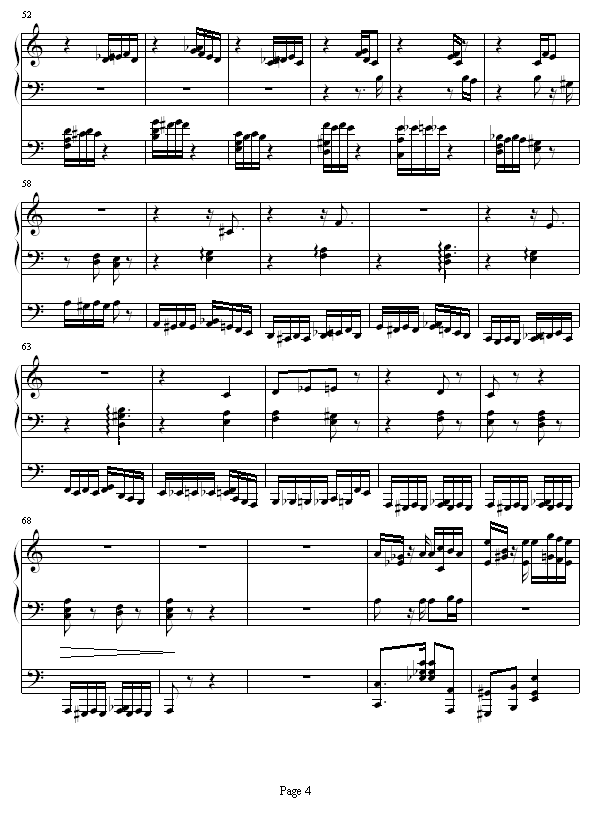 52
58
63
68
Page 4